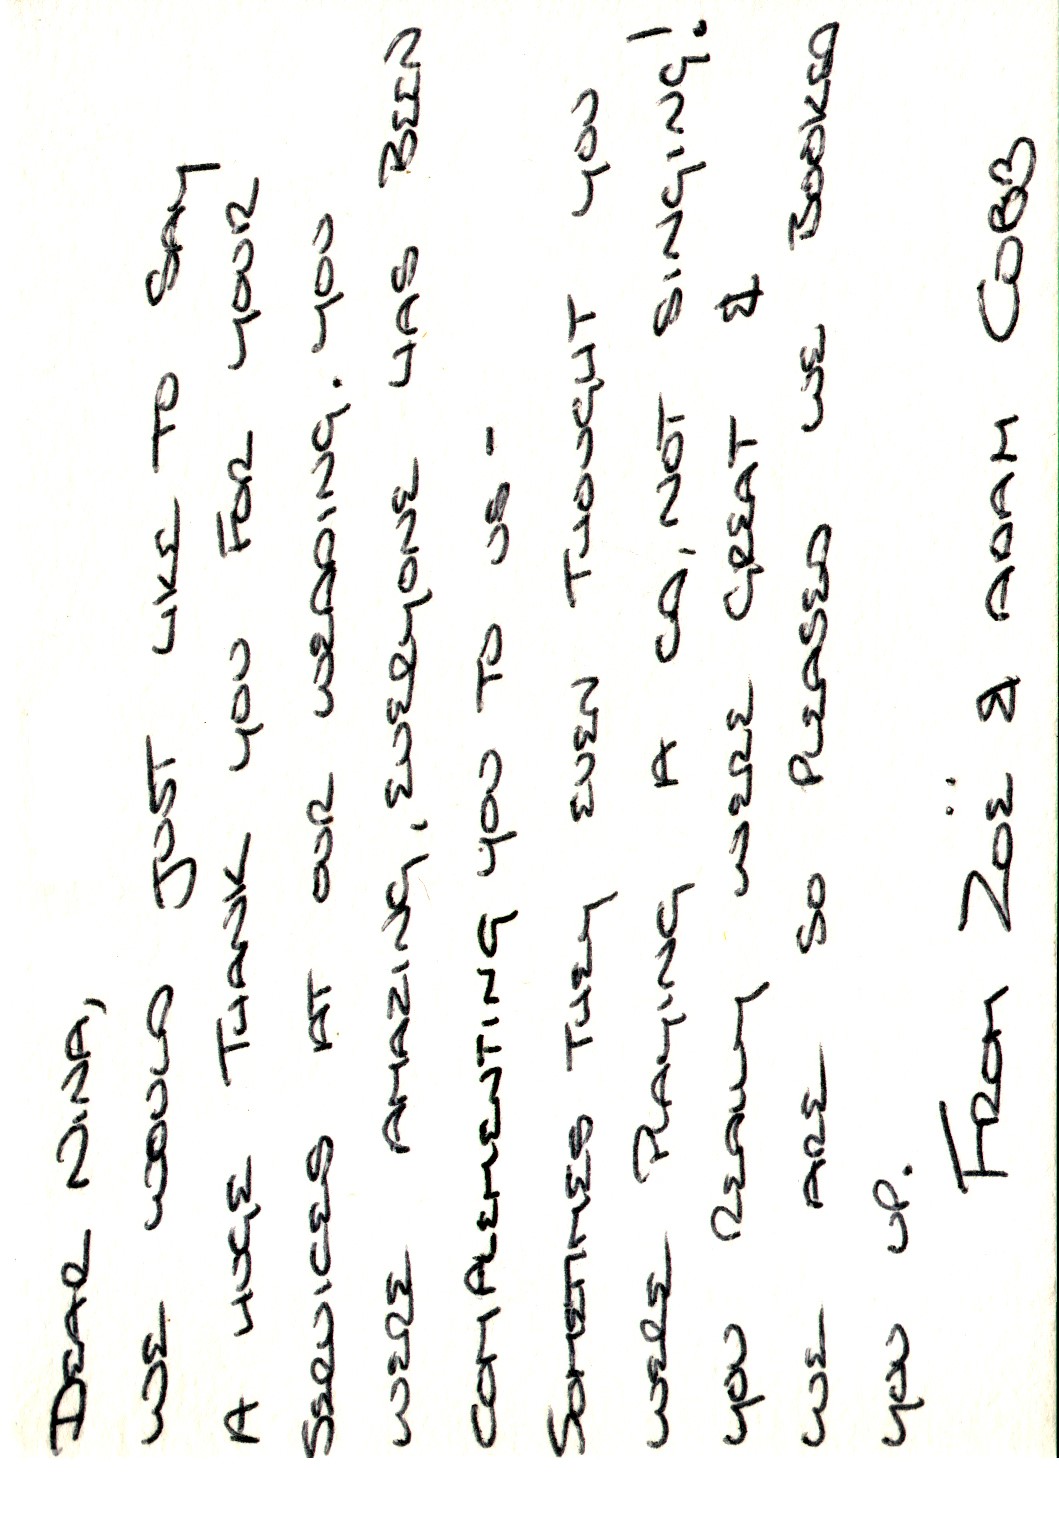 DEAR NINA,
WE WOULD JUST LIKE TO SAY
A HUGE THANK YOU FOR YOUR
SERVICES AT OUR WEDDING. YOU
WERE AMAZING, EVERYONE HAS BEEN
COMPLEMENTING YOU TO US -
SOMETIMES THEY EVEN THOUGHT YOU
WERE PLAYING A CD, NOT SINGING!
YOU REALLY WERE GREAT &
WE ARE SO PLEASED WE BOOKED
YOU UP.
FROM ZOË & ADAM COBB